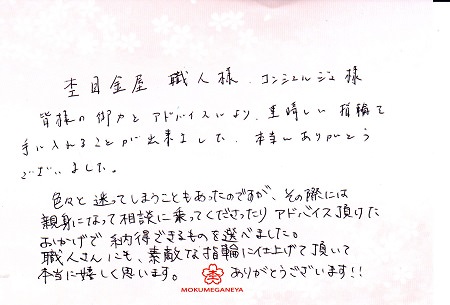 杢目金屋 職人様、コンシェルジュ様
皆様の御力とアドバイスにより、素晴しい指輪を
手に入れることが出来ました。本当にありがとう
ございました。
色々と迷ってしまうこともあったのですが、その際には
親身になって相談に乗ってくださったりアドバイス頂けた
おかげで納得できるものを選べました。
職人さんにも、素敵な指輪に仕上げて頂いて
本当に嬉しく思います。 ありがとうございます!!
MOKUMEGANEYA